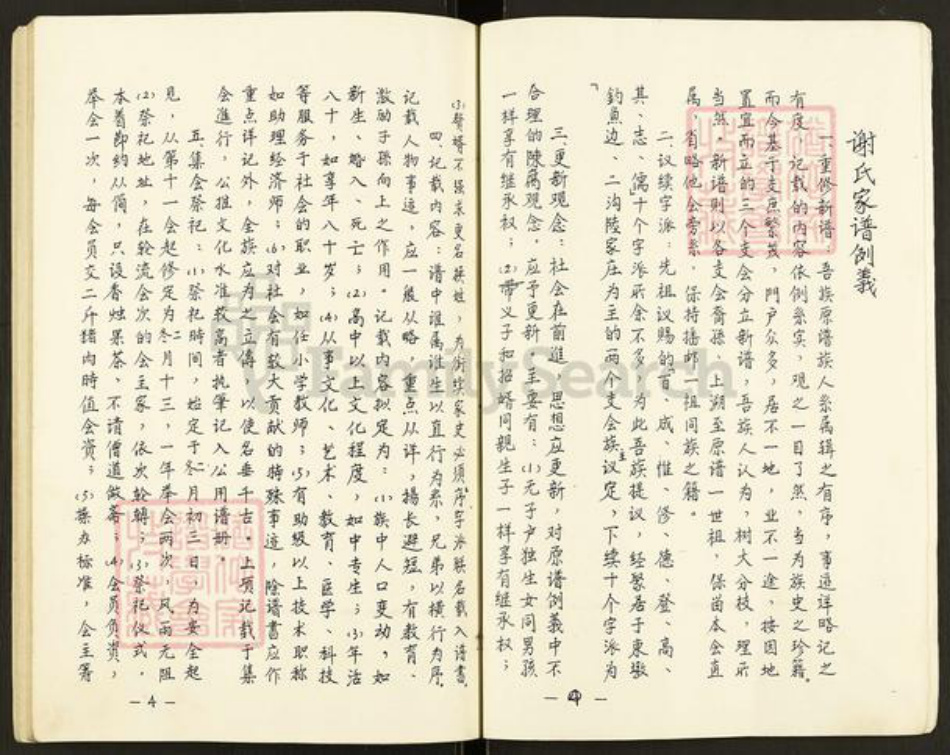 谢氏家谱例義
一、重修新谱：吾族原谱族人系属辑之有序，事迹详略记之
有度，记载的内容依例系实，观之一目了然，当为族史之珍籍。
而今基于支庶繁茂，門户众多，居不一地，业不一途、按因地
置宜而立的三个支会分立新谱，吾族人认为，树大分枝，理所
当然。新谱则以各支会裔孫、上朔至原谱一世祖，保留本会直
属，省略他会旁系，保持播邮一祖同族之籍。
二、议续字派：先祖议赐的"百、成、惟、修、德、登、高、
其、志、儒"十个字派所余不多，为此吾族提议，经聚居于東墩
钓魚边、二沟陸家庄为主的两个支会族主议定，下续十个字派为
「
三、更新观念：社会在前進，思想应更新，对原谱例義中不
合理的陳腐观念，应予更新，主要有：⑴无子户独生女同男孩
一样享有继承权；⑵带义子和招婿同親生子一样享有继承权；
⑶贅婿不强求更名换姓，为衔续家史必须序字派联名载入谱書。
四、记载内容：谱中谁属谁生以直行为系，兄弟以横行为序。
记载人物事迹，应一般从略，重点从详，揚长避短，有教育、
激励子孫向上之作用。记载内容拟定为：⑴族中人口变动，如
新生、婚入、死亡；⑵高中以上文化程度，如中专生；⑶年活
八十，如享年八十岁；⑷从事文化、艺术、教育、医学、科技
等服务于社会的职业，如任小学教师；⑸有助级以上技术职称
如助理经济师；⑹对社会有较大贡献的特殊事迹，除谱書应作
重点详记外，全族应为之立傳，以使名垂千古。上项记载于集
会進行，公推文化水准较高者执筆记入公用谱册。
五、集会祭祀：⑴祭祀時间，始定于冬月初三日，为安全起
見，从第十一会起修定为冬二月十三，一年举会两次，风雨无阻
⑵祭祀地址，在轮流会次的会主家，依次轮轉；⑶祭祀仪式，
本着節约从简，只设香烛果茶、不请僧道做斋；⑷会员負資，
举会一次，每会员交二斤猪肉時值会資；⑸操办标准，会主筹
— 4 —